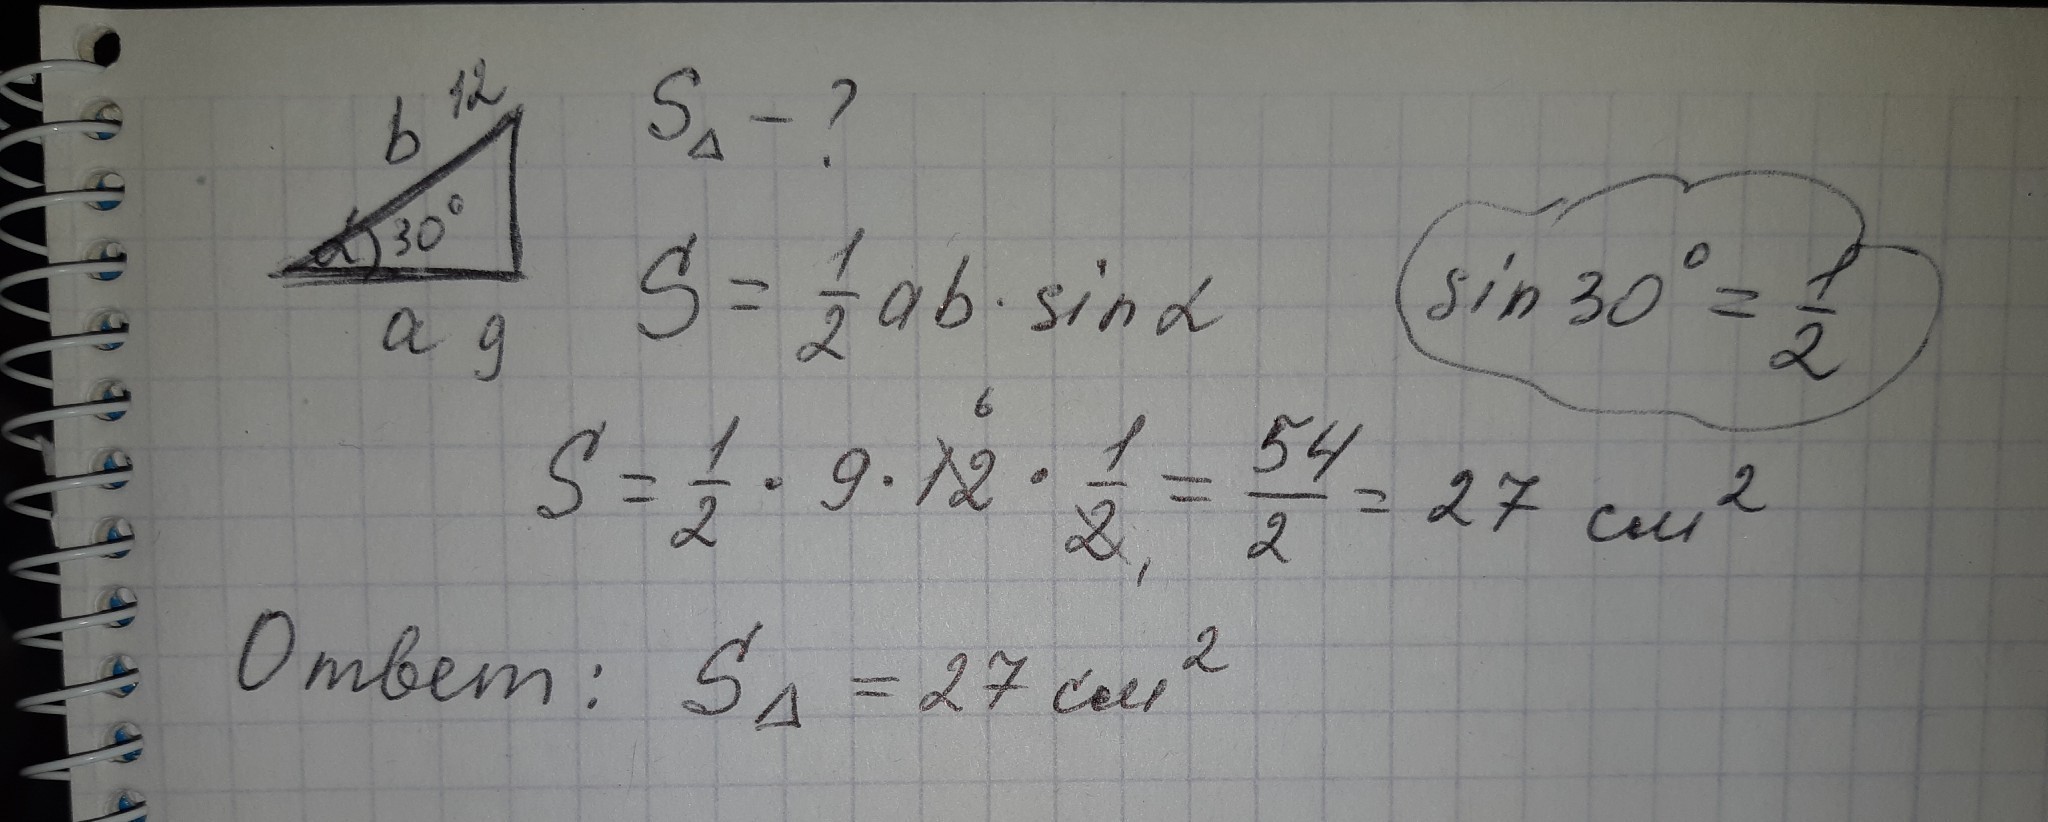 b 12
S△ - ?
α 30°
a 9
S = 1/2 ab · sin α
sin 30° = 1/2
6
S = 1/2 · 9 · 12 · 1/2 1 = 54/2 = 27 см²
Ответ: S△ = 27 см²